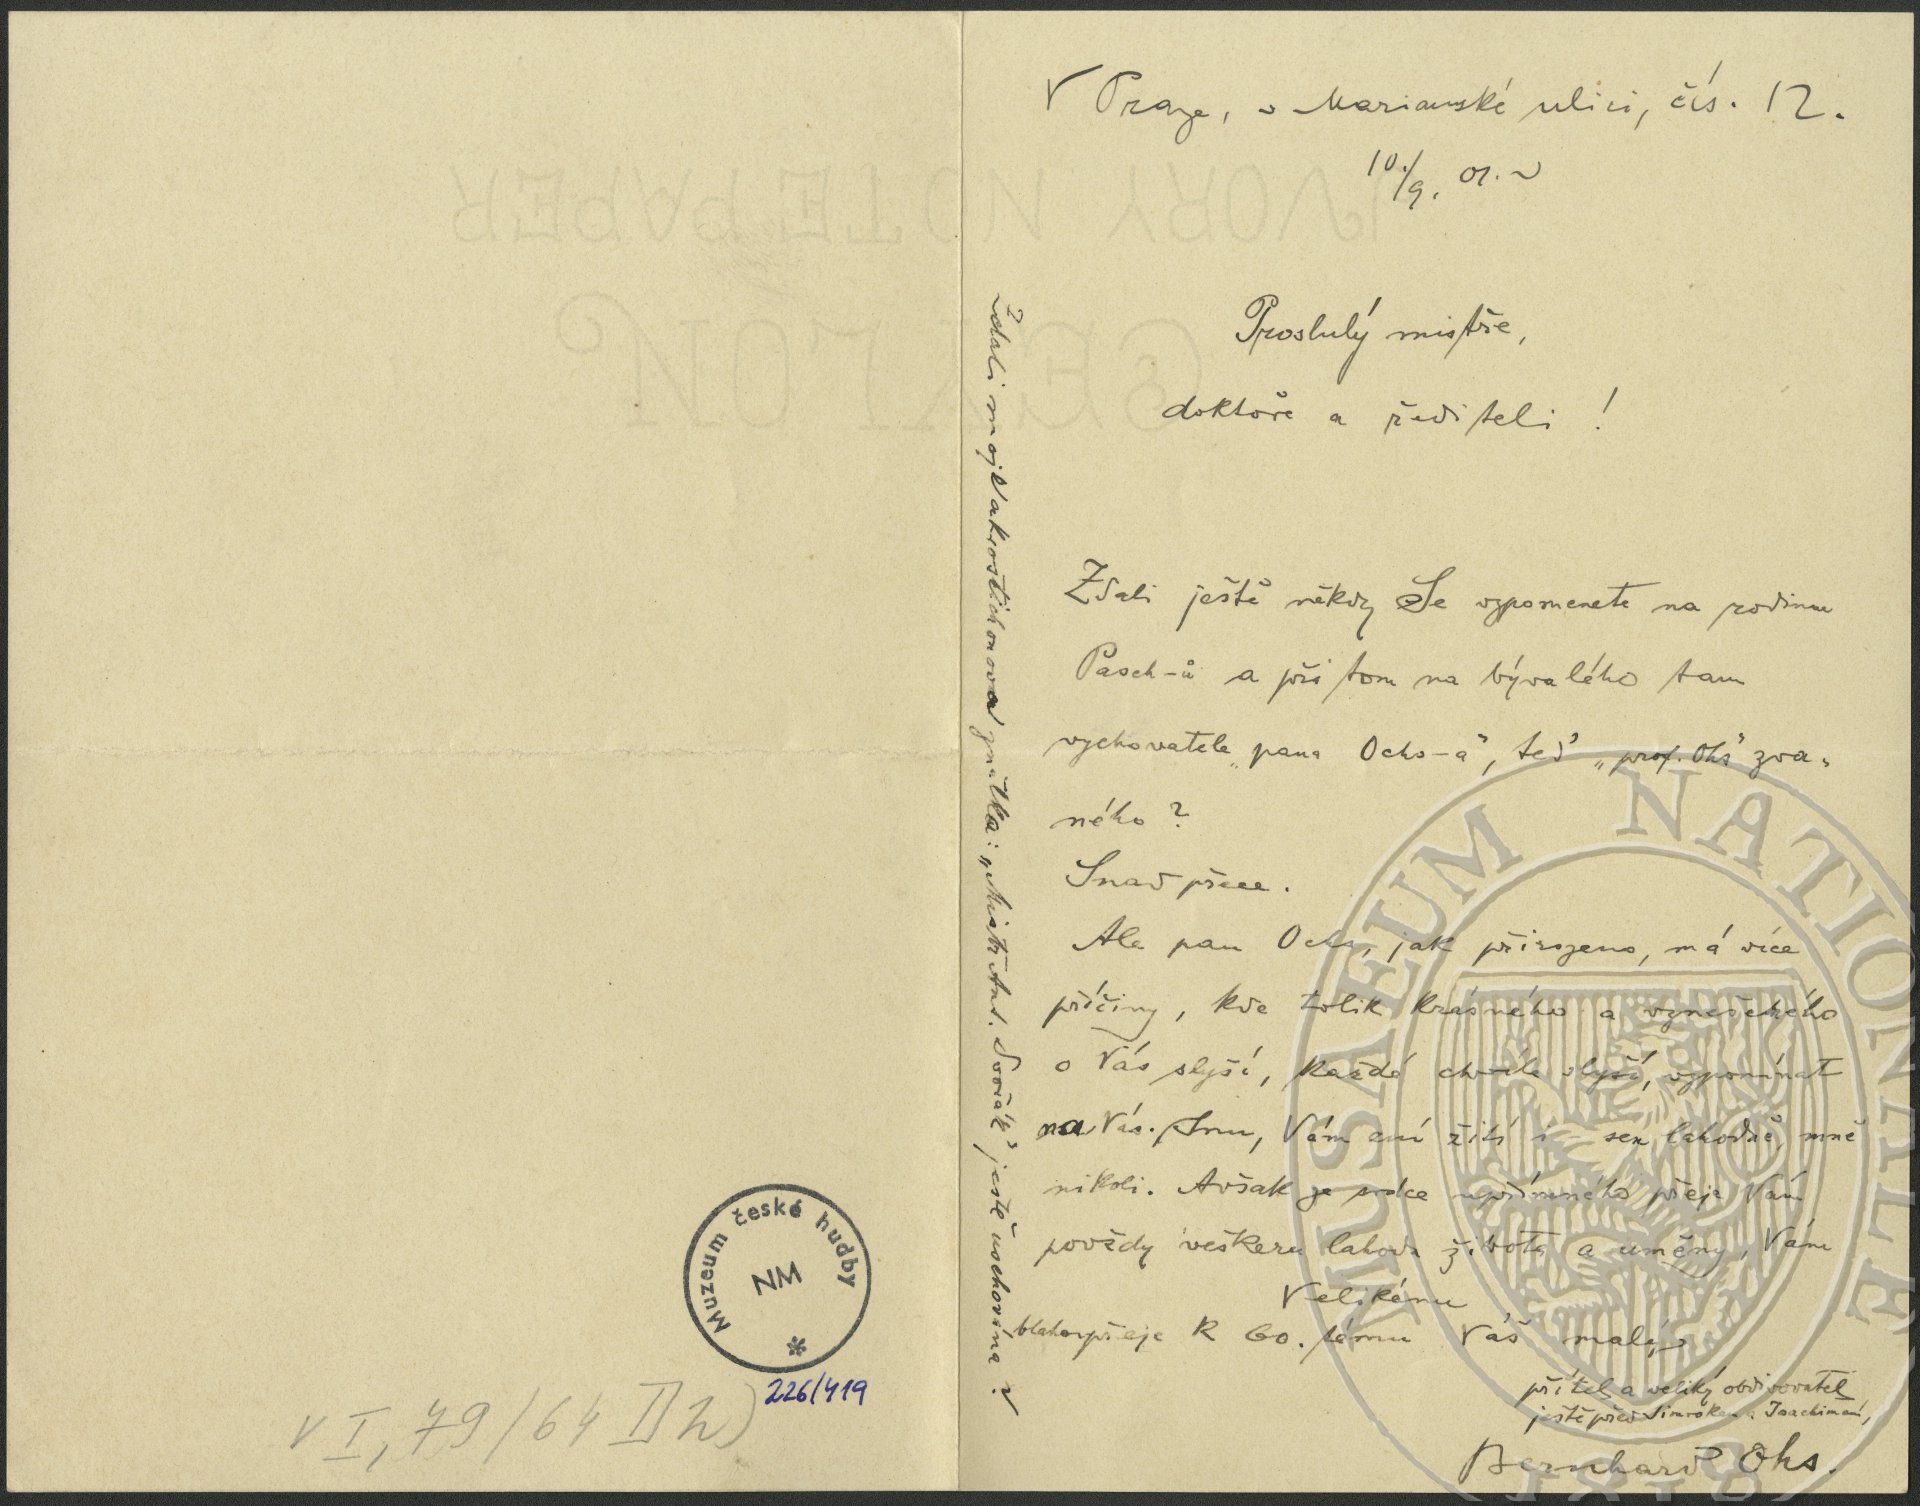 V Praze, v Marianské ulici, čís. 12.
10./9. 01.
Proslulý mistře,
doktoře a řediteli!
Zdali ještě někdy Se vzpomenete na rodinu
Pasch-ů a při tom na bývalého tam
vychovatele „pana Ochs-a“, teď „prof. Ohs“ zva„
ného?
Snad přece.
Ale pan Ochs, jak přirozeno, má více
příčiny, kde tolik krásného a vznešeného
o Vás slyší, každé chvíle slyší, vzpomínat
na Vás. Vám zní žití i sen lahodně, mně
nikoli. Avšak ze srdce upřímného přeje Vám
povždy veškeru lahodu života a uměny, Vám
Velikému
blahopřeje k 60.tému Váš malý
přítel a veliký obdivovatel
ještě před Simrokem a Joachimem,
Bernhard Ohs.
Zdali moje akrostichonova znělka: „Mistr Ant. Dvořák“ ještě uschována?
Muzeum české hudby
NM
226/419
V I, 79/64 II h)
IVORY NOTE PAPER
MUSAEUM NATIONALE
1818